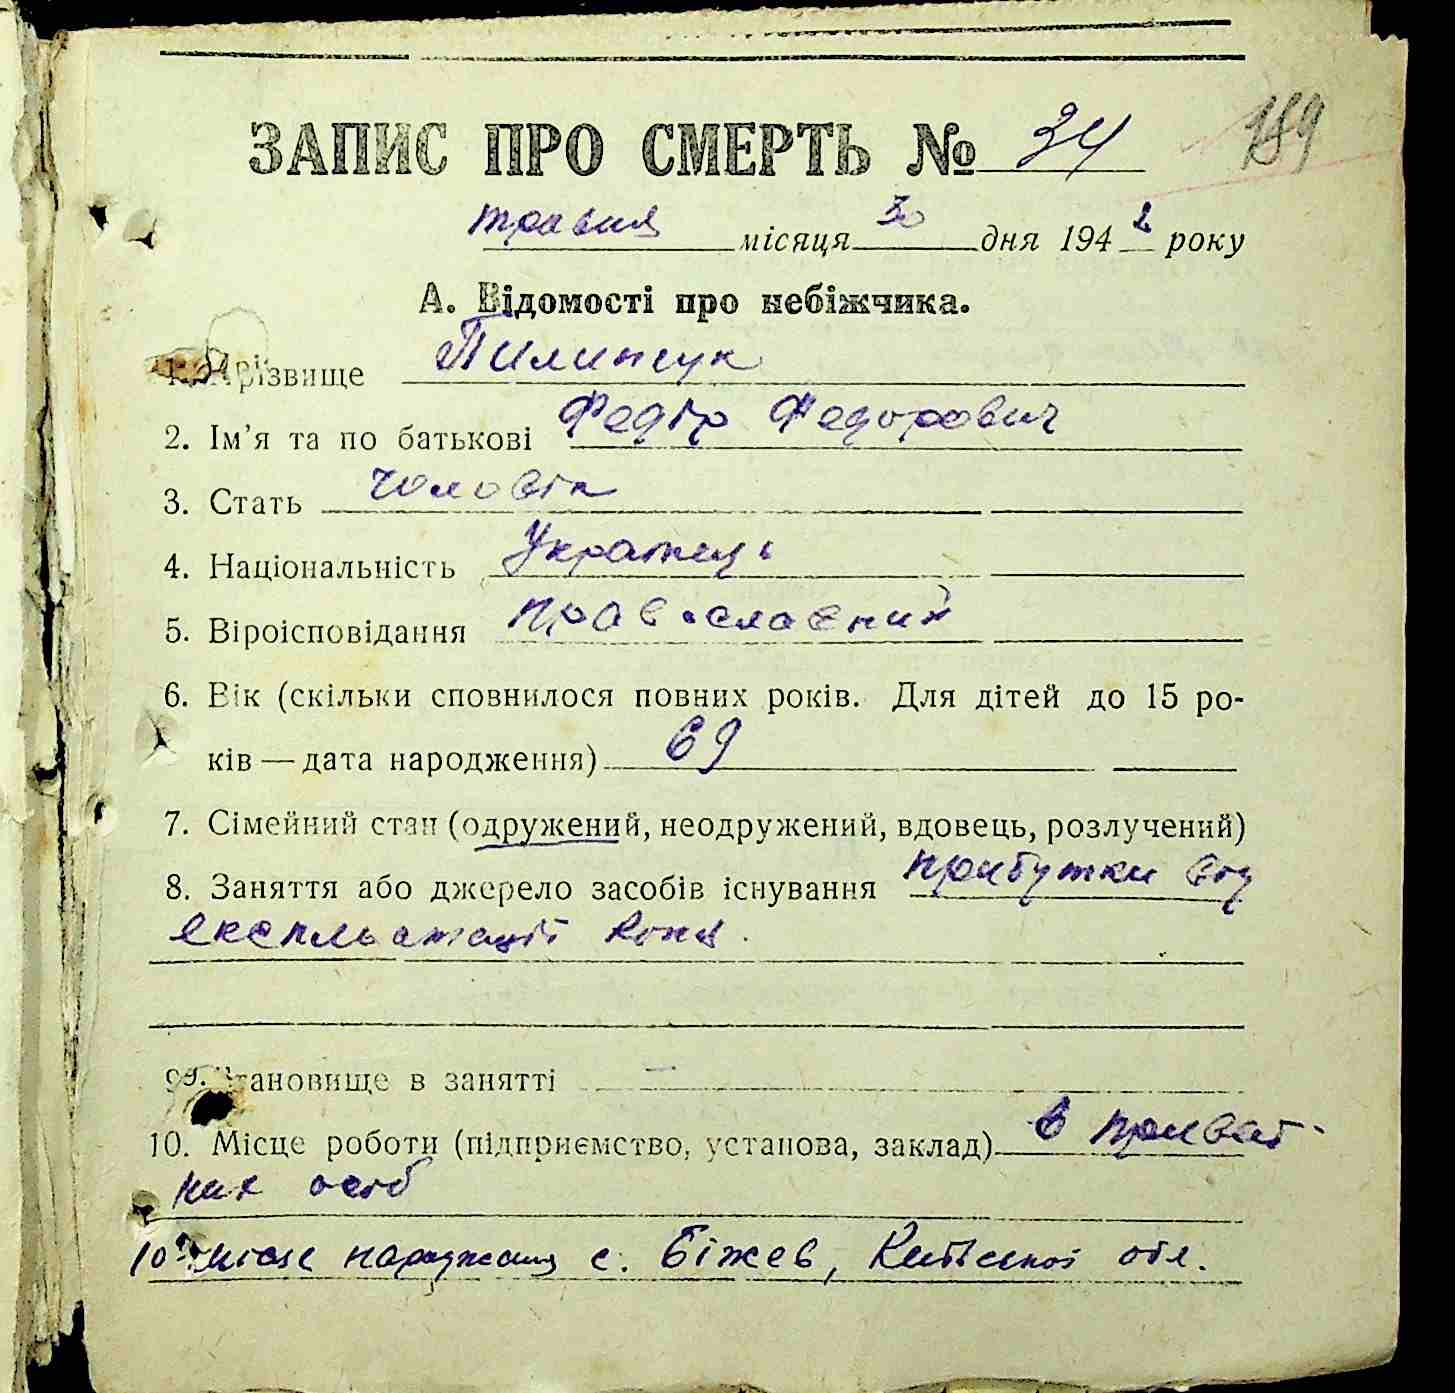 ЗАПИС ПРО СМЕРТЬ № 34
189
травня місяця 30 дня 1942 року
А. Відомості про небіжчика.
1. Прізвище Пилипчук
2. Ім’я та по батькові Федір Федорович
3. Стать чоловік
4. Національність Українець
5. Віроісповідання православний
6. Вік (скільки сповнилося повних років. Для дітей до 15 ро-
ків — дата народження) 69
7. Сімейний стан (одружений, неодружений, вдовець, розлучений)
8. Заняття або джерело засобів існування прибутки від
експльоатації коня.
9. Становище в занятті —
10. Місце роботи (підприємство, установа, заклад) в приват-
них осіб
10а місце народження с. Біжев, Київської обл.